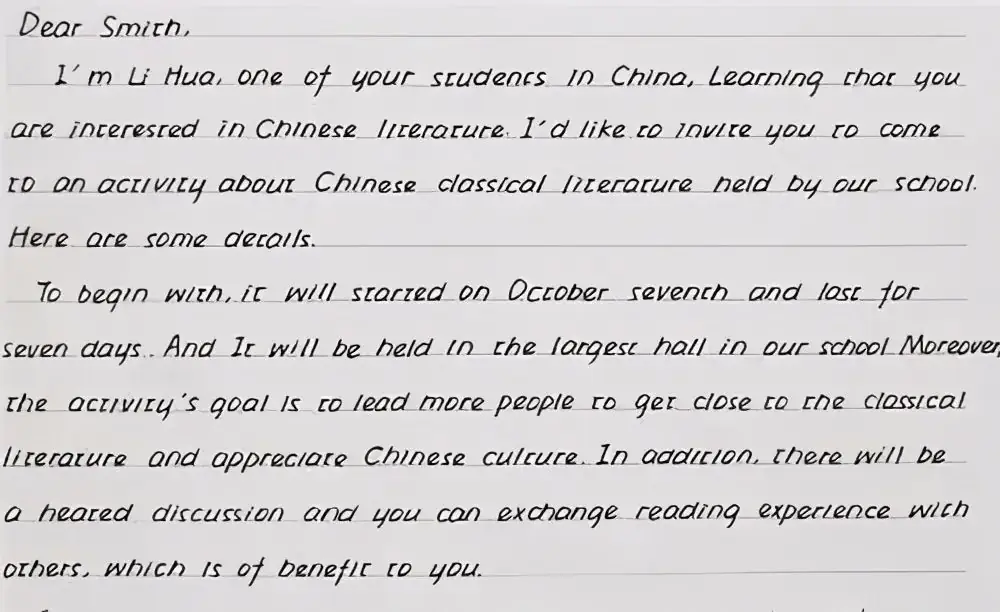 Dear Smith,
I'm Li Hua, one of your students in China, Learning that you
are interested in Chinese literature. I'd like to invite you to come
to an activity about Chinese classical literature held by our school.
Here are some details.
To begin with, it will started on October seventh and last for
seven days.. And It will be held in the largest hall in our school Moreover,
the activity's goal is to lead more people to get close to the classical
literature and appreciate Chinese culture. In addition, there will be
a heated discussion and you can exchange reading experience with
others, which is of benefit to you.